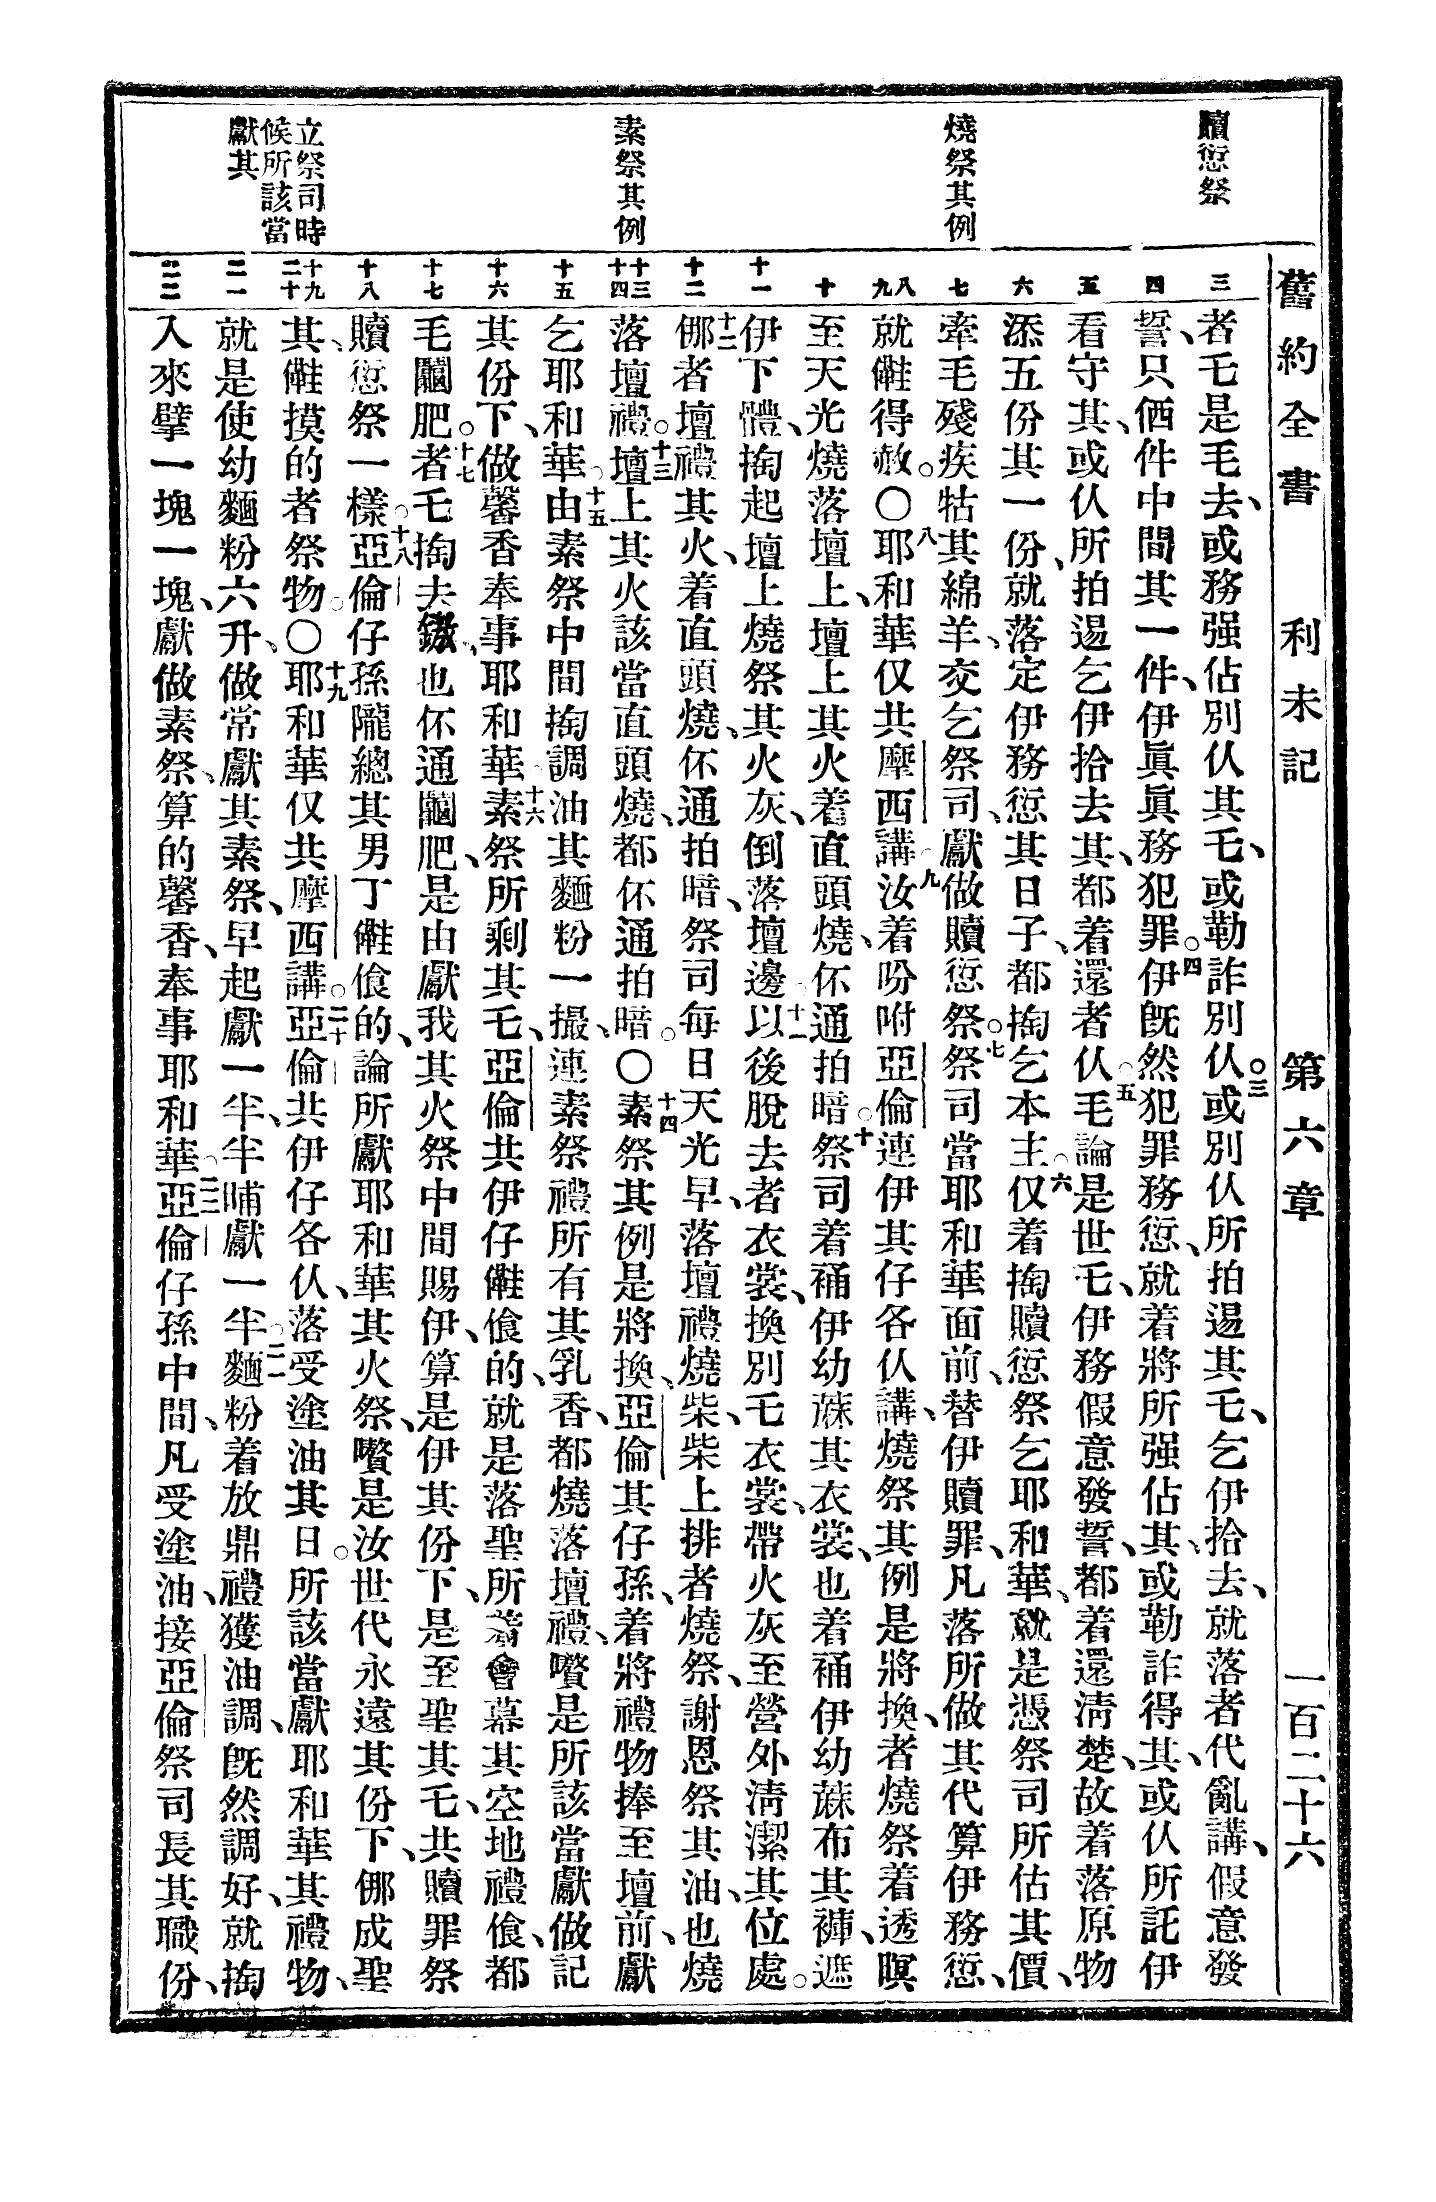 舊約全書　利未記　第六章　一百二十六
贖愆祭
燒祭其例
素祭其例
立祭司時
候所該當
獻其
三
四
五
六
七
八
九
十
十一
十二
十三
十四
十五
十六
十七
十八
十九
二十
二一
二二
者乇是毛去、或務强佔別仈其乇、或勒詐別仈○三或別仈所拍逿其乇、乞伊拾去、就落者代亂講、假意發
誓、只㑚件中間其一件、伊眞眞務犯罪。四伊旣然犯罪務愆、就着將所强佔其、或勒詐得其、或仈所託伊
看守其、或仈所拍逿乞伊拾去其、都着還者仈。五毛論是世乇、伊務假意發誓、都着還淸楚、故着落原物
添五份其一份、就落定伊務愆其日子、都掏乞本主。六仅着掏贖愆祭乞耶和華、就是憑祭司所估其價、
牽毛殘疾牯其綿羊、交乞祭司、獻做贖愆祭。七祭司當耶和華面前、替伊贖罪、凡落所做其代算伊務愆、
就㒉得赦。○八耶和華仅共摩西講、九汝着吩咐亞倫連伊其仔各仈講、燒祭其例是將換、者燒祭着透暝
至天光燒落壇上、壇上其火着直頭燒、伓通拍暗。十祭司着補伊幼蔴其衣裳、也着補伊幼蔴布其褲、遮
伊下體、掏起壇上燒祭其火灰、倒落壇邊。十一以後脫去者衣裳、換別乇衣裳、帶火灰至營外淸潔其位處。
十二㑚者壇禮其火、着直頭燒、伓通拍暗、祭司每日天光早、落壇禮燒柴、柴上排者燒祭、謝恩祭其油、也燒
落壇禮。十三壇上其火該當直頭燒、都伓通拍暗。○十四素祭其例是將換、亞倫其仔孫、着將禮物捧至壇前、獻
乞耶和華。十五由素祭中間掏調油其麵粉一撮、連素祭禮所有其乳香、都燒落壇禮、嚽是所該當獻、做記
其份下、做馨香奉事耶和華。十六素祭所剩其乇、亞倫共伊仔㒉飡的、就是落聖所着會幕其空地禮飡、都
毛䵤肥。十七者乇掏去也伓通䵤肥、是由獻我其火祭中間賜伊、算是伊其份下、是至聖其乇、共贖罪祭
贖愆祭一樣。十八亞倫仔孫隴總其男丁㒉飡的、論所獻耶和華其火祭、嚽是汝世代永遠其份下、㑚成聖
其、㒉摸的者祭物。○十九耶和華仅共摩西講。二十亞倫共伊仔各仈、落受塗油其日。所該當獻耶和華其禮物、
就是使幼麵粉六升、做常獻其素祭、早起獻一半、半晡獻一半。二一麵粉着放鼎禮獲油調、旣然調好、就掏
入來擘一塊一塊、獻做素祭、算的馨香、奉事耶和華。二二亞倫仔孫中間、凡受塗油、接亞倫祭司長其職份、